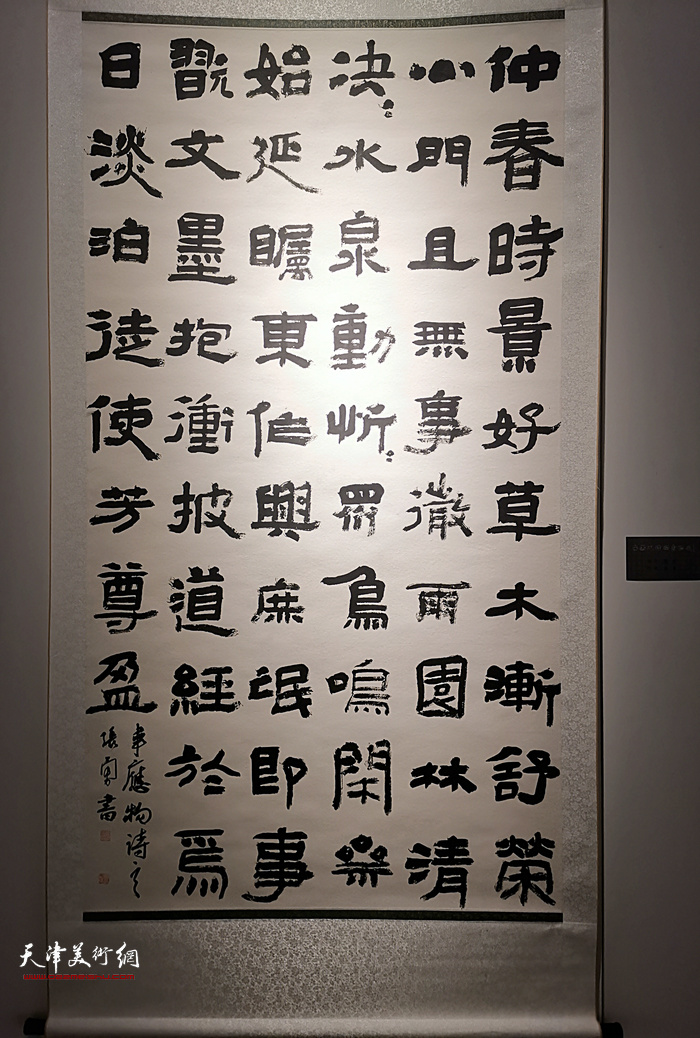 仲春時景好草木漸舒榮
小門且無事微雨園林清
決〻水泉動忻〻眾鳥鳴閑齋
始延矚東作興庶氓即事
翫文墨抱衝披道經於焉
日淡泊徒使芳尊盈
韋應物詩
張 書
天津美術網